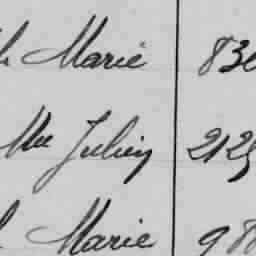 Marie 830
Mee Julien 2125
Marie 98